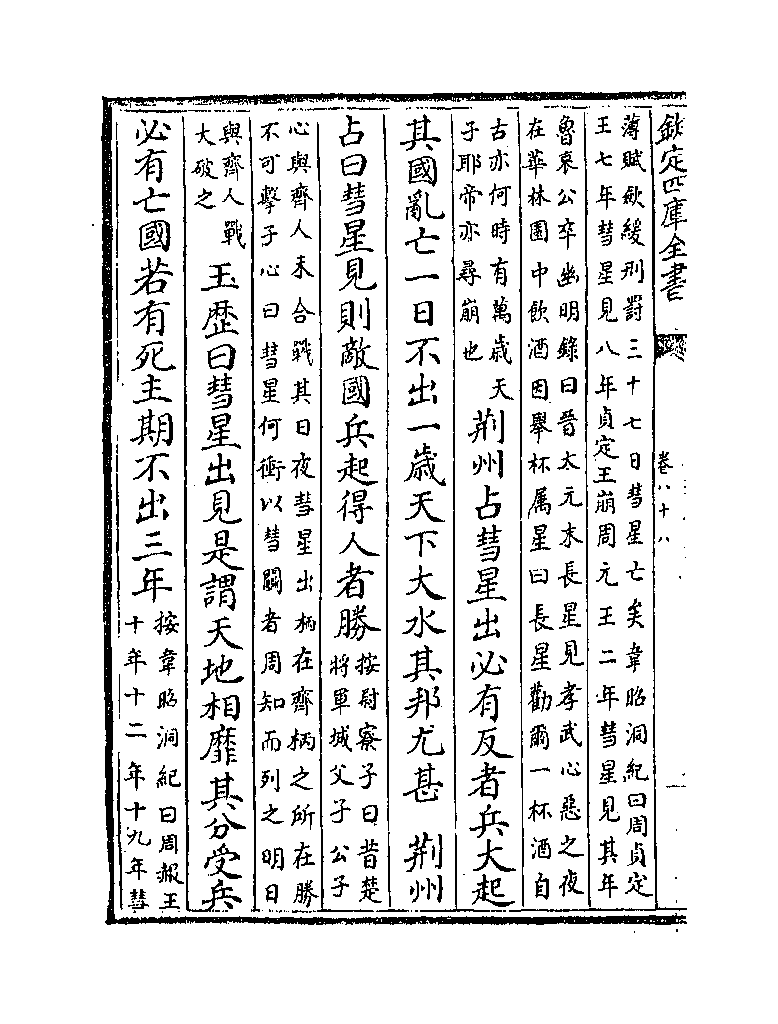 欽定四庫全書
卷八十八
薄賦歛緩刑罰三十七日彗星亡矣韋昭洞紀曰周貞定
王七年彗星見八年貞定王崩周元王二年彗星見其年
魯哀公卒幽明錄曰晉太元末長星見孝武心惡之夜
在華林園中飲酒因舉杯属星曰長星勸爾一杯酒自
古亦何時有萬歲天
子耶帝亦尋崩也
荆州占彗星出必有反者兵大起
其國亂亡一日不出一歲天下大水其邦尤甚 荆州
占曰彗星見則敵國兵起得人者勝
按尉寮子曰昔楚
將軍城父子公子
心與齊人未合戰其日夜彗星出柄在齊柄之所在勝
不可擊子心曰彗星何衝以彗鬭者周知而列之明日
與齊人戰
大破之
玉歴曰彗星出見是謂天地相靡其分受兵
必有亡國若有死主期不出三年
按韋昭洞紀曰周赧王
十年十二年十九年彗